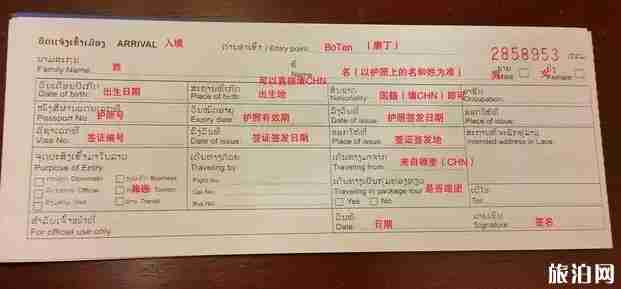 ບັດແຈ້ງເຂົ້າເມືອງ ARRIVAL 入境 ດ່ານຂາເຂົ້າ / Entry point: BoTen（磨丁） 2858953
ນາມສະກຸນ
Family Name: 姓 ຊື່ Name: 名（以护照上的名和姓为准） ຊາຍ Male 男 ຍິງ Female 女
可以直接填CHN
ວັນເດືອນປີເກີດ ສະຖານທີ່ເກີດ ສັນຊາດ ອາຊີບ
Date of birth: 出生日期 Place of birth: 出生地 Nationality: 国籍（填CHN）即可 Occupation:
ໜັງສືຜ່ານແດນເລກທີ ວັນໝົດອາຍຸ ລົງວັນທີ ອອກໃຫ້ທີ່
Passport No: 护照号 Expiry date: 护照有效期 Date of issue: 护照签发日期 Place of issue:
ວີຊາເລກທີ ລົງວັນທີ ອອກໃຫ້ທີ່
Visa No: 签证编号 Date of issue: 签证签发日期 Place of issue: 签证签发地 Intended address in Laos:
ຈຸດປະສົງເຂົ້າມາໃນລາວ ເດີນທາງໂດຍ ເດີນທາງມາຈາກ
Purpose of Entry: Traveling by: Traveling from: 来自哪里（CHN）
Diplomatic Business Flight No:
Official Tourism Car No: Traveling in package tour 是否跟团
Visit Transit Bus No: Yes No Tel:
ສຳລັບເຈົ້າໜ້າທີ່ ວັນທີ ລາຍເຊັນ
For official use only Date: 日期 Signature: 签名
旅泊网